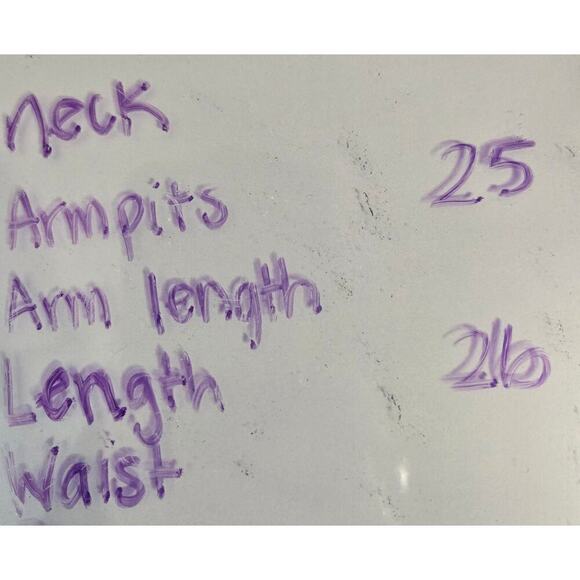 neck
Armpits 25
Arm length
Length 26
Waist